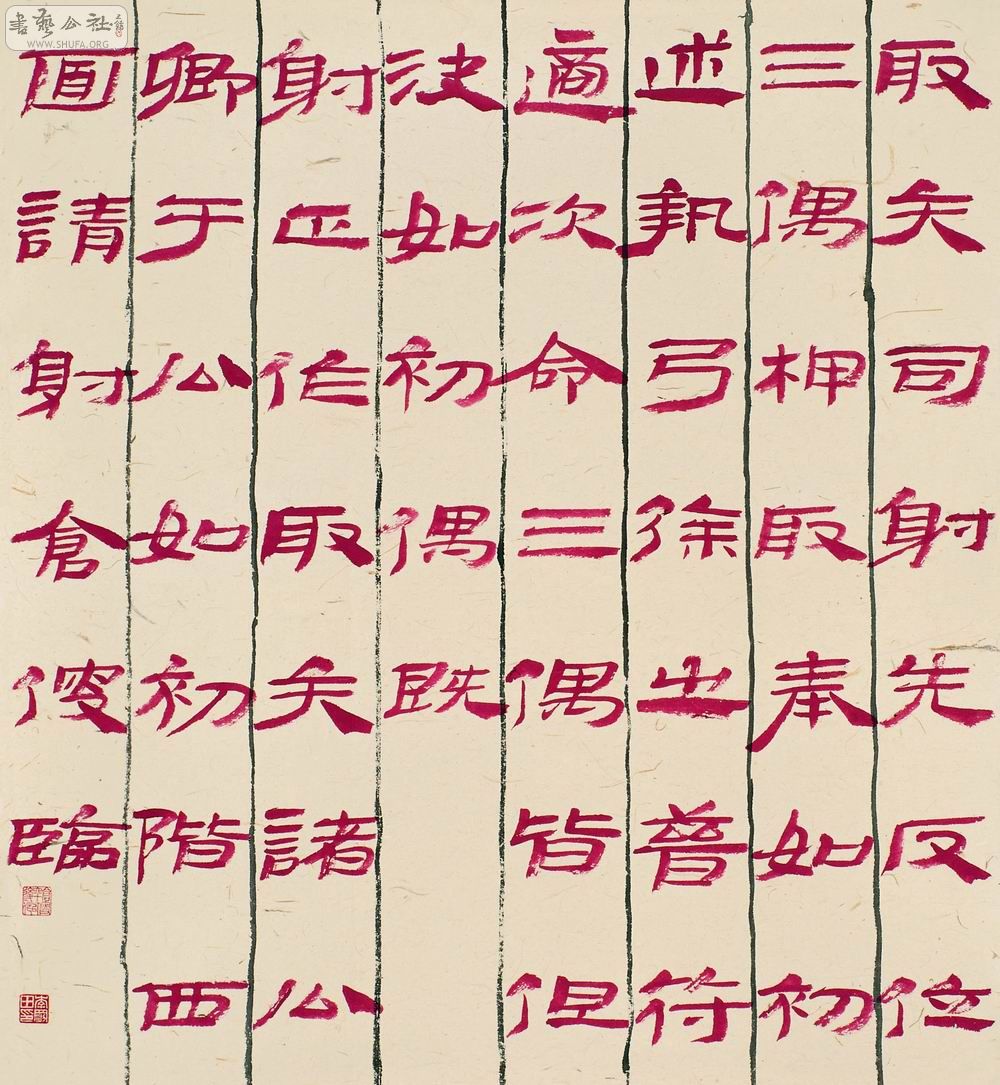 書藝公社
WWW.SHUFA.ORG
取矢司射先反位
三偶柙取奉如初
述執弓徐出普符
適次命三偶皆但
決如初偶既
射正作取矢諸公
卿于公如初階西
面請射倉傁臨